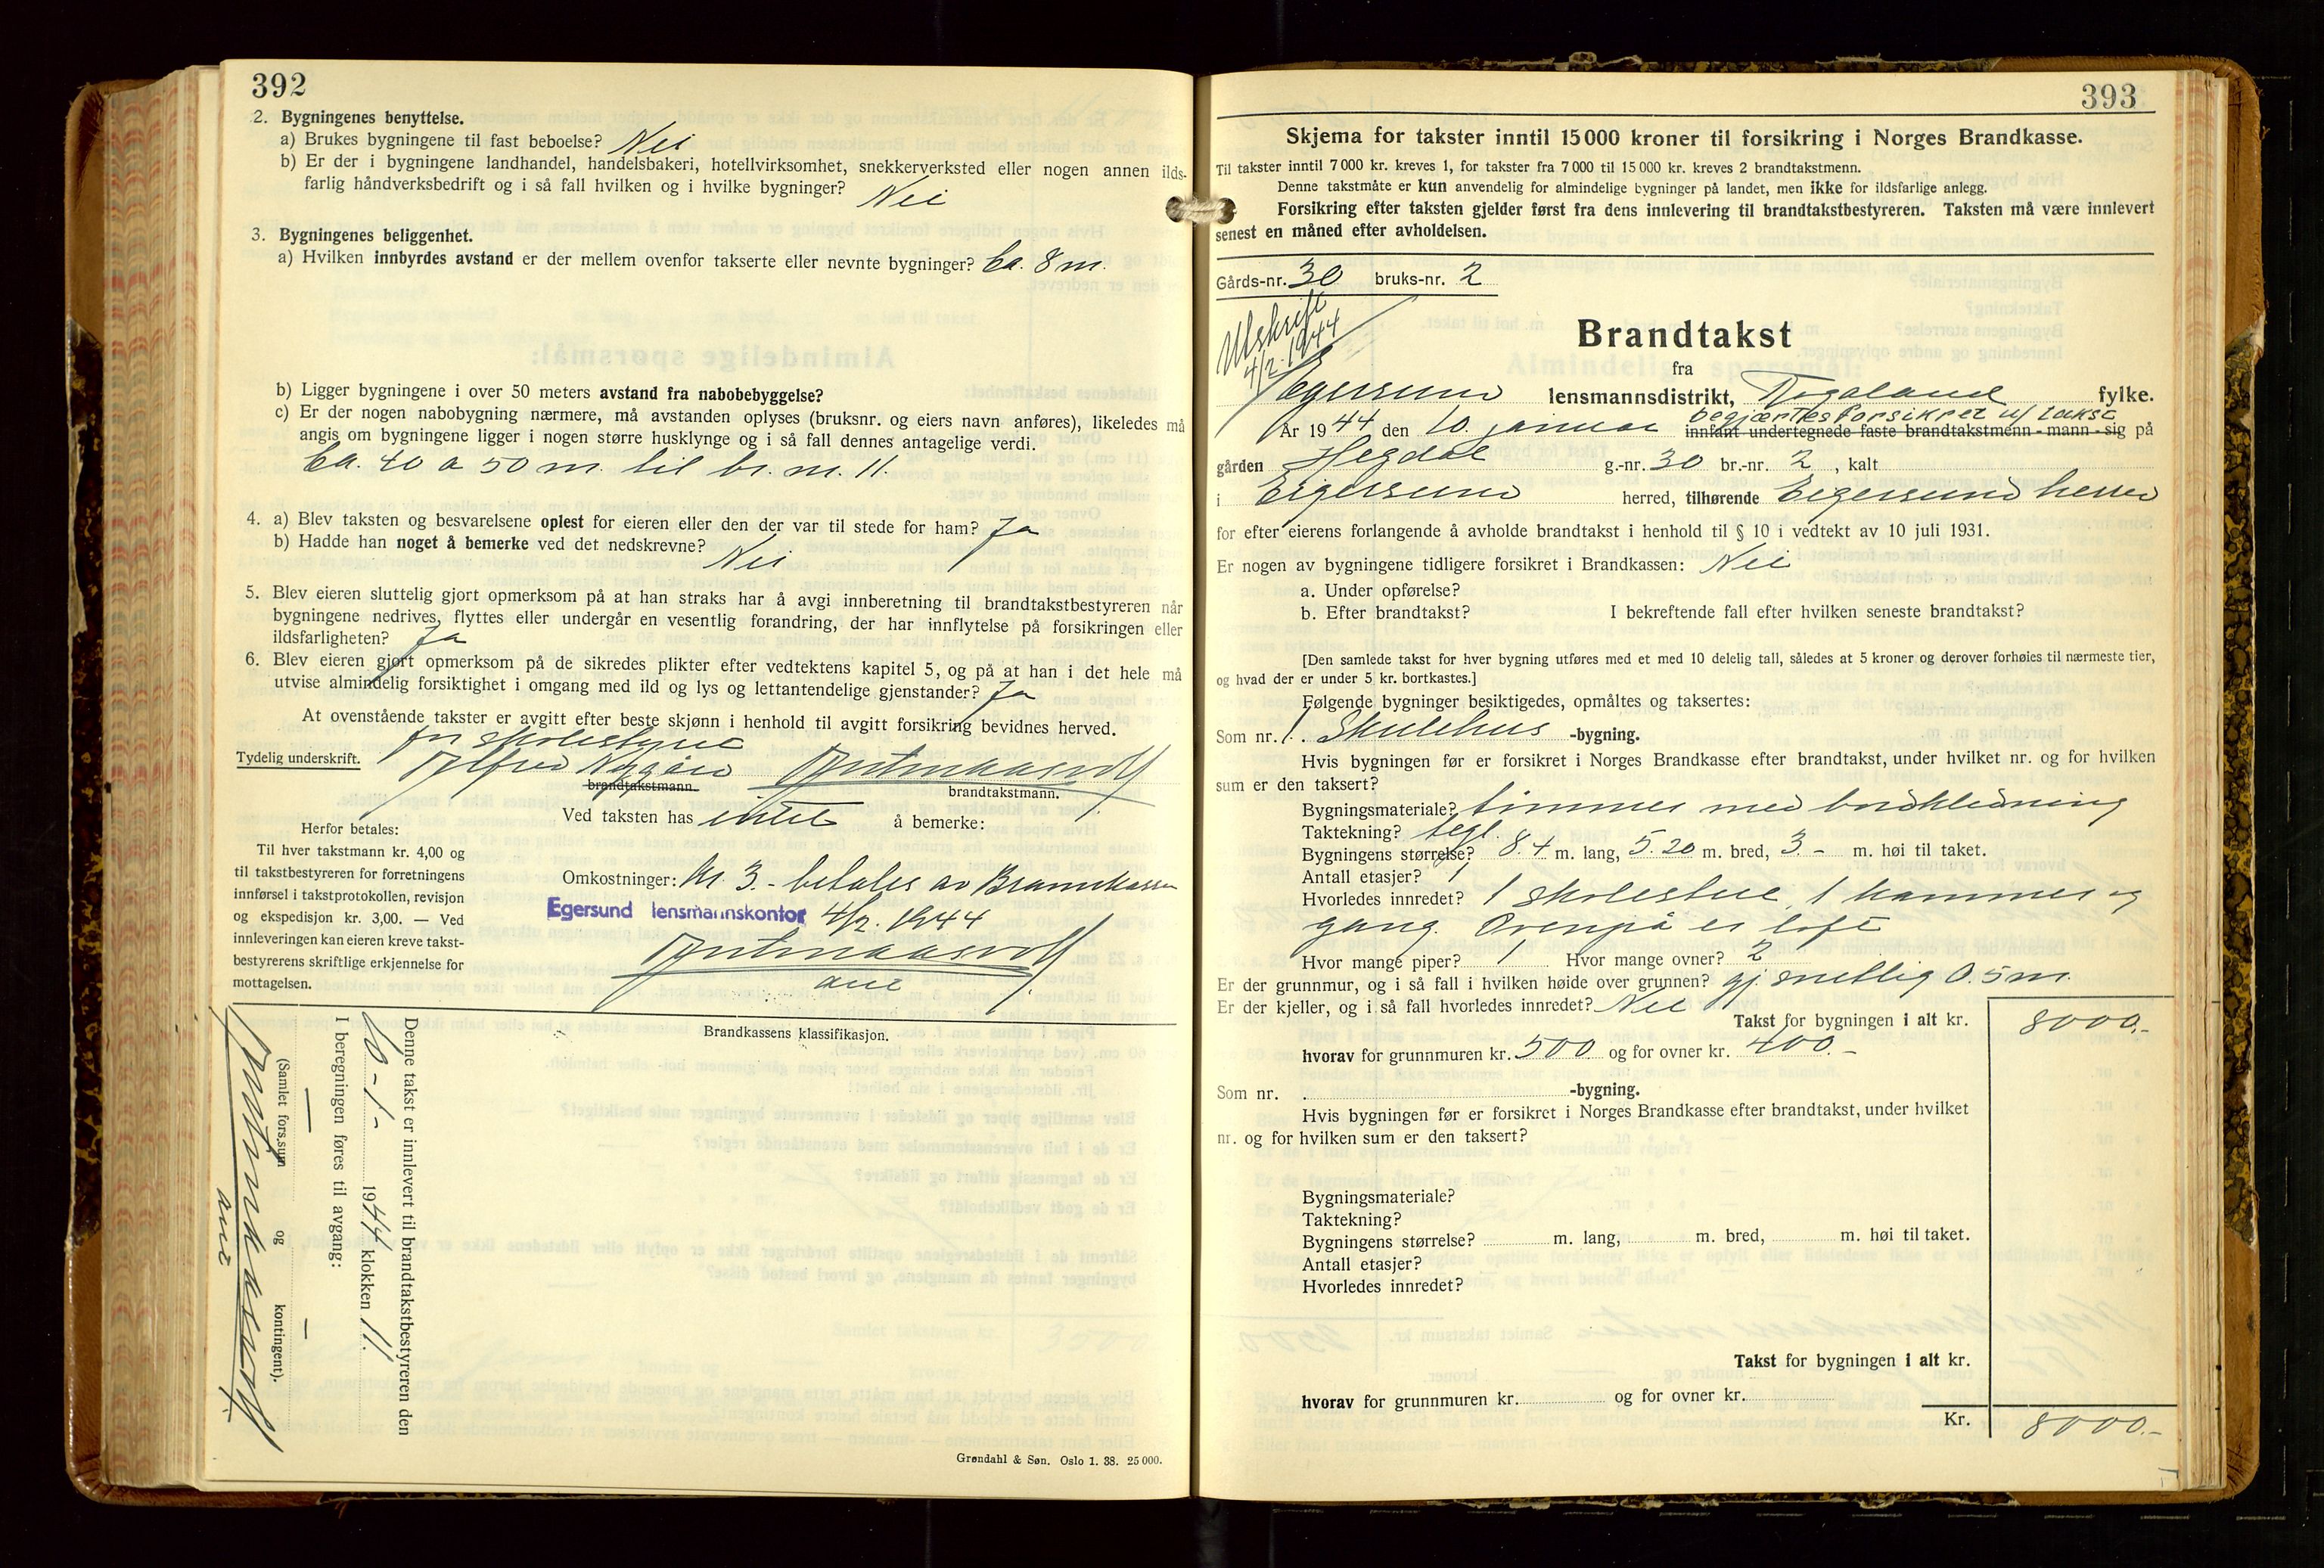 392
2. Bygningenes benyttelse.
a) Brukes bygningene til fast beboelse? Nei
b) Er der i bygningene landhandel, handelsbakeri, hotellvirksomhet, snekkerverksted eller nogen annen ilds-
farlig håndverksbedrift og i så fall hvilken og i hvilke bygninger? Nei
3. Bygningenes beliggenhet.
a) Hvilken innbyrdes avstand er der mellem ovenfor takserte eller nevnte bygninger? Ca. 8 m.
b) Ligger bygningene i over 50 meters avstand fra nabobebyggelse?
c) Er der nogen nabobygning nærmere, må avstanden oplyses (bruksnr. og eiers navn anføres), likeledes må
angis om bygningene ligger i nogen større husklynge og i så fall dennes antagelige verdi.
Ca. 40 a 50 m. til br. nr. 11.
4. a) Blev taksten og besvarelsene oplest for eieren eller den der var til stede for ham? Ja
b) Hadde han noget å bemerke ved det nedskrevne? Nei
5. Blev eieren sluttelig gjort opmerksom på at han straks har å avgi innberetning til brandtakstbestyreren når
bygningene nedrives, flyttes eller undergår en vesentlig forandring, der har innflytelse på forsikringen eller
ildsfarligheten? Ja
6. Blev eieren gjort opmerksom på de sikredes plikter efter vedtektens kapitel 5, og på at han i det hele må
utvise almindelig forsiktighet i omgang med ild og lys og lettantendelige gjenstander? Ja
At ovenstående takster er avgitt efter beste skjønn i henhold til avgitt forsikring bevidnes herved.
for skolestyret
Tydelig underskrift. Alfred Nygård
brandtakstmann. brandtakstmann.
Ved taksten has intet å bemerke:
Herfor betales:
Til hver takstmann kr. 4,00 og
til takstbestyreren for forretningens
innførsel i takstprotokollen, revisjon
og ekspedisjon kr. 3,00. — Ved
innleveringen kan eieren kreve takst-
bestyrerens skriftlige erkjennelse for
mottagelsen.
Omkostninger: Kr. 3.- betales av Brannkassen
Egersund lensmannskontor 4/2. 1944
Brandkassens klassifikasjon.
Denne takst er innlevert til brandtakstbestyreren den
10-1- 1944 klokken 11.
I beregningen føres til avgang:
— —
(Samlet fors.sum og kontingent).
Grøndahl & Søn. Oslo 1. 38. 25 000.
393
Skjema for takster inntil 15 000 kroner til forsikring i Norges Brandkasse.
Til takster inntil 7 000 kr. kreves 1, for takster fra 7 000 til 15 000 kr. kreves 2 brandtakstmenn.
Denne takstmåte er kun anvendelig for almindelige bygninger på landet, men ikke for ildsfarlige anlegg.
Forsikring efter taksten gjelder først fra dens innlevering til brandtakstbestyreren. Taksten må være innlevert
senest en måned efter avholdelsen.
Gårds-nr. 30 bruks-nr. 2
Utskrift
4/2.1944
Brandtakst
fra
Egersund lensmannsdistrikt, Rogaland fylke.
begjærtes forsikret u/ takst
År 1944 den 10. januar innfant undertegnede faste brandtakstmenn - mann - sig på
gården Hegdal g.-nr. 30 br.-nr. 2, kalt
i Eigersund herred, tilhørende Eigersund herred
for efter eierens forlangende å avholde brandtakst i henhold til § 10 i vedtekt av 10 juli 1931.
Er nogen av bygningene tidligere forsikret i Brandkassen: Nei
a. Under opførelse?
b. Efter brandtakst? I bekreftende fall efter hvilken seneste brandtakst?
[Den samlede takst for hver bygning utføres med et med 10 delelig tall, således at 5 kroner og derover forhøies til nærmeste tier,
og hvad der er under 5 kr. bortkastes.]
Følgende bygninger besiktigedes, opmåltes og taksertes:
Som nr. 1. Skulehus -bygning.
Hvis bygningen før er forsikret i Norges Brandkasse efter brandtakst, under hvilket nr. og for hvilken
sum er den taksert?
Bygningsmateriale? timmer med bordkledning
Taktekning? tegl.
Bygningens størrelse? 8.4 m. lang, 5.20 m. bred, 3.- m. høi til taket.
Antall etasjer? 1
Hvorledes innredet? 1 skolestue, 1 kammer og
gang. Ovenpå er loft
Hvor mange piper? 1 Hvor mange ovner? 2
Er der grunnmur, og i så fall i hvilken høide over grunnen? gj.snittlig 0.5 m.
Er der kjeller, og i så fall hvorledes innredet? Nei
Takst for bygningen i alt kr. 8000.-
hvorav for grunnmuren kr. 500 og for ovner kr. 400.-
Som nr. . -bygning.
Hvis bygningen før er forsikret i Norges Brandkasse efter brandtakst, under hvilket
nr. og for hvilken sum er den taksert?
Bygningsmateriale?
Taktekning?
Bygningens størrelse? m. lang, m. bred, m. høi til taket.
Antall etasjer?
Hvorledes innredet?
Takst for bygningen i alt kr.
hvorav for grunnmuren kr. og for ovner kr.
Kr. 8000.-